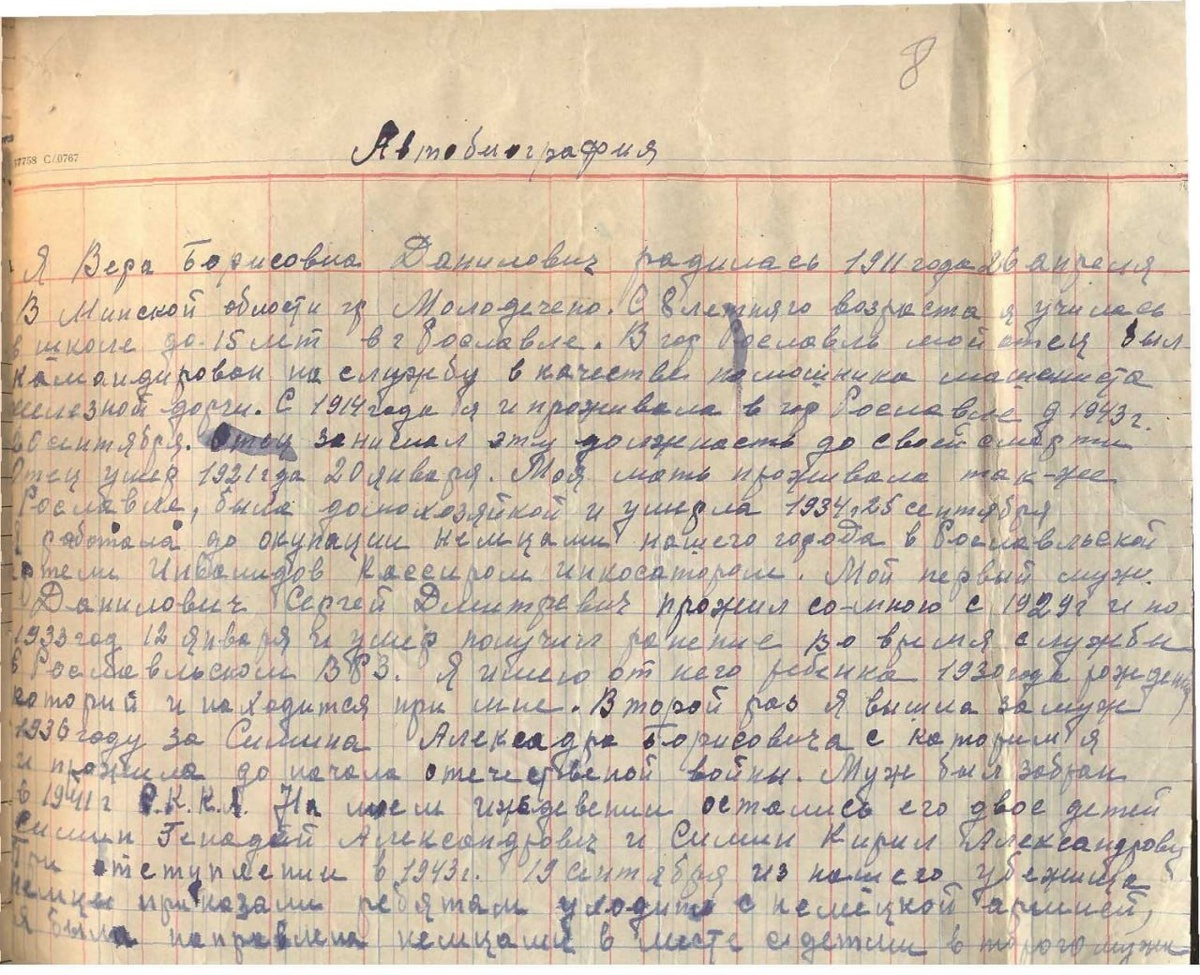 8
37758 С/.0767
Автобиография
Я Вера Борисовна Данилович радилась 1911 года 26 апреля
В Минской облости гр Молодечено. С 8 летнего возраста я училась
в школе до 15 лет в г Рославле. В гор Рославль мой отец был
камандирован на службу в качестве помошника машениста
железной дорги. С 1914 года я и проживала в гор Рославле д 1943 г.
сентября. Отец занимал эту должность до своей смерти
Отец умер 1921 года 20 января. Моя мать проживала так-же
Рославле, была домохозяйкой и умерла 1934, 25 сентября
Я работала до окупации немцами нашего города в Рославльской
артели Инвалидов Кассиром инкосатором. Мой первый муж
Данилович Сергей Дмитревич прожил со-мною с 1929 г и по
1933 год 12 января и умер получил ранение во время службы
в Рославльском ВРЗ. Я имею от него ребенка 1930 года рождения
который и находится при мне. Второй раз я вышла замуж
1936 году за Симина Александра Борисовича с каторим я
и прожила до начала отечественой войны. Муж был забран
в 1941 г Р.К.К.А. На моем иждевении остались его двое детей
Симин Генадей Александрович и Симин Кирил Александрович
При отступлении в 1943 г. 19 сентября из нашего убежища
немцы приказали ребятам уходить с немецкой армией,
я была направлена немцами в месте с детми второго мужа